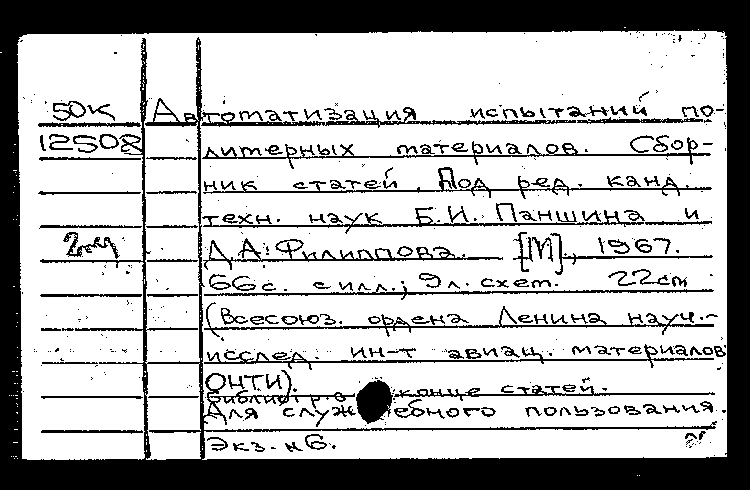 50К Автоматизация испытаний по-
12508 лимерных материалов. Сбор-
ник статей. Под ред. канд.
техн. наук Б.И. Паншина и
Д.А. Филиппова. [М], 1967.
66с. с илл.; 9л. схем. 22см
(Всесоюз. ордена Ленина науч.-
исслед. ин-т авиац. материалов
ОНТИ).
Библиогр. в конце статей.
Для служебного пользования.
Экз. н6.